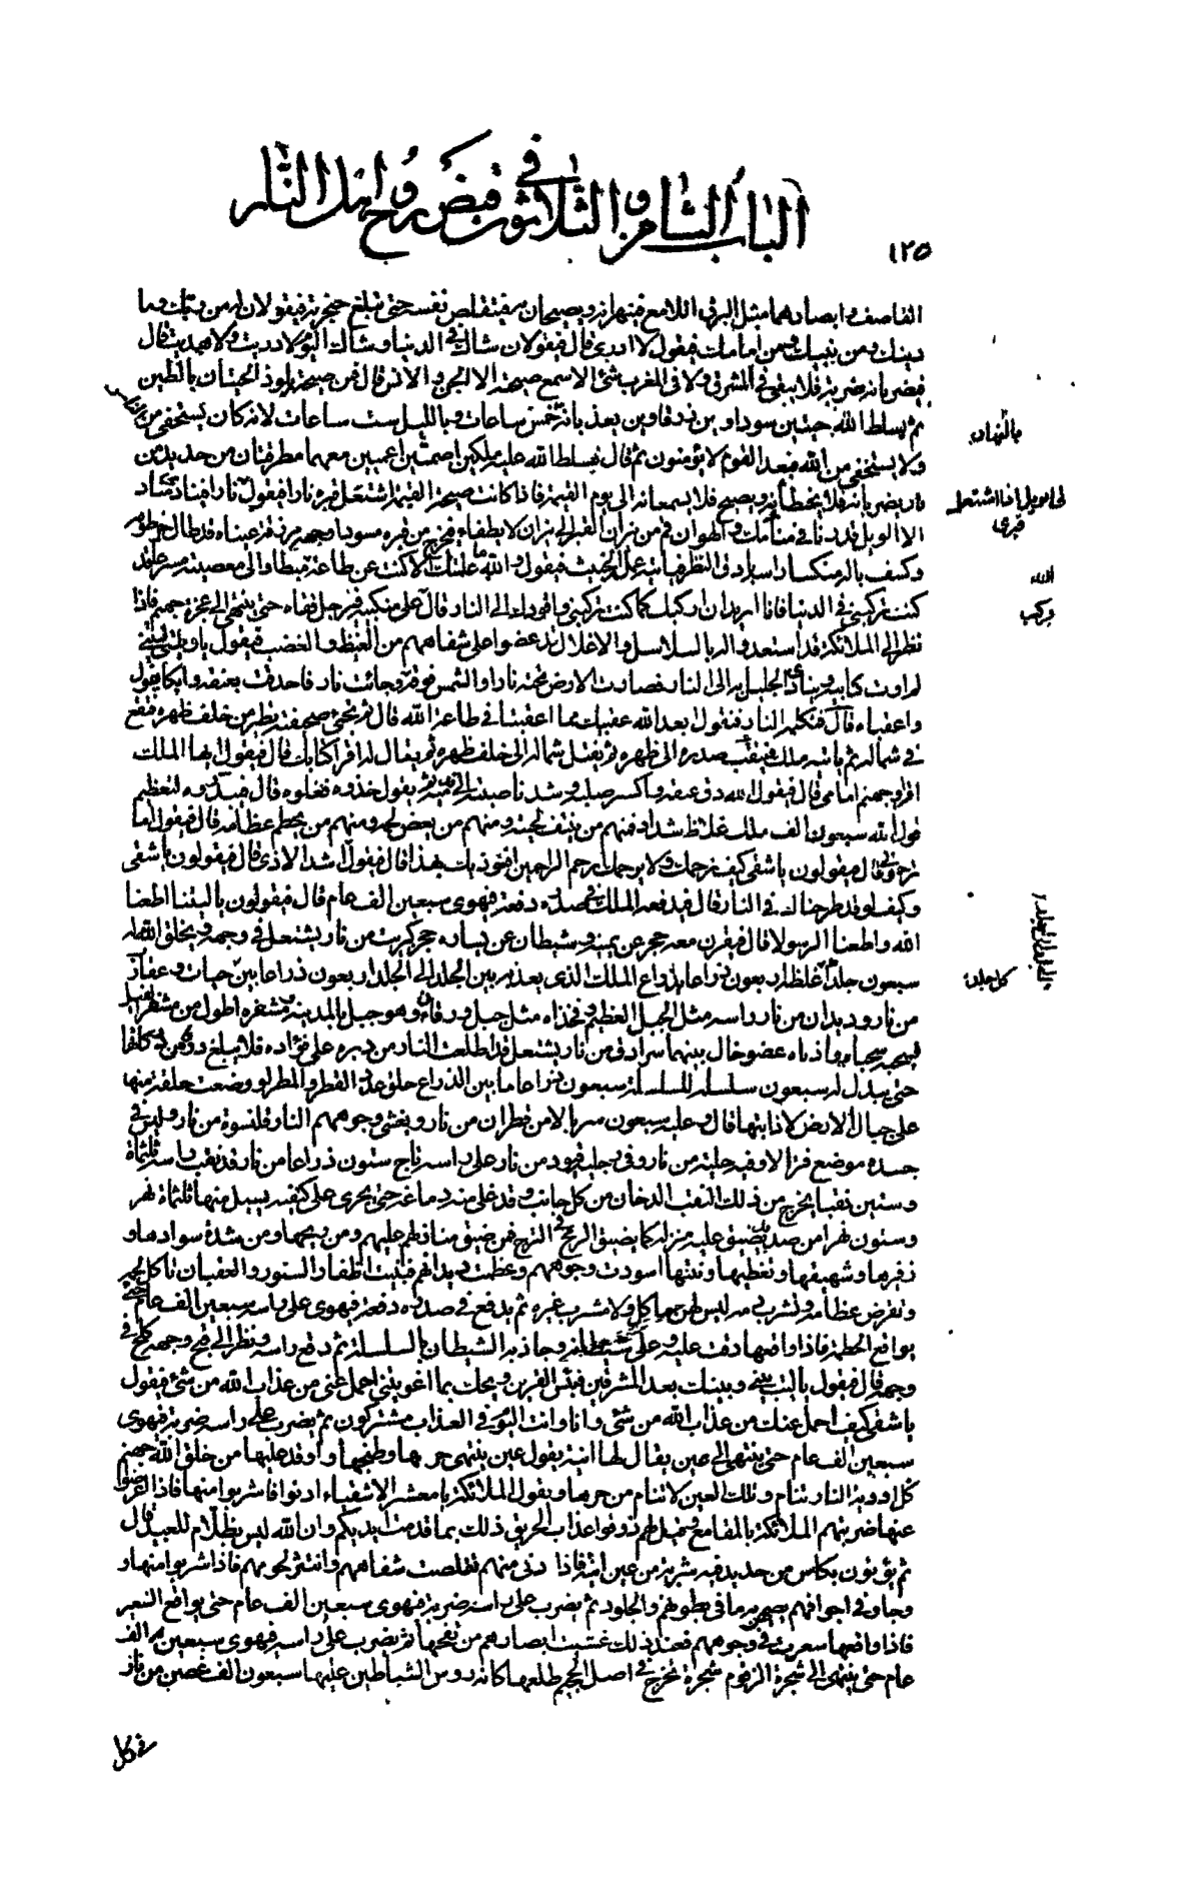 الباب الثامن و الثلاثون في قبض روح اهل النار
١٢٥
القاصف و ابصارهما مثل البرق اللامع فينتهرانه ويصيحان به فيتقلص نفسه حتى تبلغ حنجرته فيقولان له من ربك وما
دينك ومن نبيك ومن امامك فيقول لا ادري قال فيقولان شاك في الدنيا وشاك اليوم لا دريت ولا هديت قال
فيضربانه ضربة فلا يبقى في المشرق ولا في المغرب شئ الا سمع صيحته الا الجن و الانس قال فمن صيحته يلوذ الحيتان بالطين
ثم يسلط الله حيتين سوداوين زرقاوين يعذبانه خمس ساعات وبالليل ست ساعات لانه كان يستخفي من الناس
بالنهار
ولا يستخفي من الله فبعدا لقوم لا يؤمنون ثم قال يسلط الله عليه ملكين اصمين اعميين معهما مطرقتان من حديد من
نار يضربانه فلا يخطأنه ويصيح فلا يسمعانه الى يوم القيمة فاذا كانت صيحة القيمة اشتعل قبره نارا فيقول نارا فينادي مناد
لي الويل اذا اشتعل
قبري
الا الويل قد دنا منك والهوان قم من نيران القبر الى نيران لا يطفاء فيخرج من قبره مسودا وجهه مزرقة عيناه قد طال خرطومه
وكسف باله منكسا راسه يسارق النظر فياتيه عمله الخبيث فيقول والله ما علمتك الا كنت عن طاعة الله مبطأ والى معصيته مسرعا قد
الله
كنت تركبني في الدنيا فانا اريد ان اركبك كما كنت تركبني واقودك الى النار قال على منكبيه فيرحل قفاه حتى ينتهي الى عجزة جهنم فاذا
ويركب
نظر الى الملائكة قد استعدوا له بالسلاسل والاغلال قد عضوا على شفاههم من الغيظ و الغضب فيقول يا ويلتى ليتني
لم اوت كتابيه وينادي الجليل به الى النار فصارت الارض تحته نارا والشمس فوقه وجائت نار فاحدقت بعنقه وابكا يقول
واعقباه قال فتكلمه النار فتقول ابعد الله عقبيك مما اعقبتا في طاعة الله قال ثم تجئ صحيفته تطير من خلف ظهره فتقع
في شماله ثم ياتيه ملك فيثقب صدره الى ظهره ثم يفتل شماله الى خلف ظهره ثم يقال له اقرأ كتابك قال فيقول ايها الملك
اقرأ وجهنم امامي قال فيقول الله دق عنقه واكسر صلبه وشد ناصيته الى قدميه ثم يقول خذوه فغلوه قال فيبتدره لتعظيم
قول الله سبعون الف ملك غلاظ شداد فمنهم من ينتف لحيته ومنهم من يعض لحمه ومنهم من يحطم عظامه قال فيقول اما
ترحموني قال فيقولون يا شقي كيف نرحمك ولا يرحمك ارحم الراحمين افيؤذيك هذا قال فيقول اشد الاذى قال فيقولون يا شقي
وكيف لو قد طرحناك في النار قال فيدفعه الملك في صدره دفعة فيهوى سبعين الف عام قال فيقولون يا ليتنا اطعنا
الله واطعنا الرسولا قال فيقرن معه حجر عن يمينه وشيطان عن يساره حجر كبريت من نار يشتعل في وجهه ويخلق الله له
سبعون جلدا غلظه اربعون ذراعا بذراع الملك الذي يعذبه بين الجلد الى الجلد اربعون ذراعا بين حيات وعقارب
كل جلد
من نار وديدان من نار راسه مثل الجبل العظيم وفخذاه مثل جبل ورقان وهو جبل بالمدينة مشفره اطول من مشفر الفيل
فيسحبه سحبا واذناه عضوخان بينهما سرادق من نار يشتعل قد اطلعت النار من دبره على فؤاده فلا يبلغ
حتى يبدل له سبعون سلسلة للسلسلة سبعون ذراعا ما بين الذراع حلق عدد القطر والمطر لو وضعت حلقة منها
على جبال الارض لاذابتها قال وعليه سبعون سربالا من قطران من نار وتغشى وجوههم النار وقلنسوة من نار وليس في
جسده موضع فتر الا وفيه حلية من نار وفي رجليه قيود من نار على راسه تاج ستون ذراعا من نار قد نقب راسه ثلثمائة
وستين نقبا يخرج من ذلك النقب الدخان من كل جانب وقد غلى منه دماغه حتى يجري على كتفيه يسيل منها ثلثمائة نهر
وستون نهرا من صديد يضيق عليه منزله كما يضيق الرمح في الزج فمن ضيق منازلهم عليهم ومن ريحها ومن شدة سوادها و
زفيرها وشهيقها وتغيظها ونتنها اسودت وجوههم وعظمت ديدانهم فينبت لها اظفار السنور والعقبان تاكل لحمه
وتقرض عظامه وتشرب دمه ليس لهن ماكل ولا مشرب غيره ثم يدفع في صدره دفعة فيهوى على راسه سبعين الف عام حتى
يواقع الحطمة فاذا واقعها دقت عليه وعلى شيطانه وجاذبه الشيطان بالسلسلة ثم رفع راسه ونظر الى قبح وجهه كلح في
وجهه قال فيقول يا ليت بيني وبينك بعد المشرقين فبئس القرين ويحك بما اغويتني احمل عني من عذاب الله من شئ فيقول
يا شقي كيف احمل عنك من عذاب الله من شئ وانا وانت اليوم في العذاب مشتركون ثم يضرب على راسه ضربة فيهوى
سبعين الف عام حتى ينتهي الى عين يقال لها انية يقول عين ينتهي حرها وطبخها واوقد عليها من خلق الله جهنم
كل اودية النار تنام وتلك العين لا تنام من حرها ويقول الملائكة يا معشر الاشقياء ادنوا فاشربوا منها فاذا اعرضوا
عنها ضربتهم الملائكة بالمقامع وقيل لهم ذوقوا عذاب الحريق ذلك بما قدمت ايديكم وان الله ليس بظلام للعبيد قال
ثم يؤتون بكاس من حديد فيه شربة من عين انية فاذا ادني منهم تقلصت شفاههم وانتثر لحوم وجوههم فاذا شربوا منها و
وصار في اجوافهم يصهر به ما في بطونهم والجلود ثم يضرب على راسه ضربة فيهوى سبعين الف عام حتى يواقع السعير
فاذا واقعها سعرت في وجوههم فعند ذلك غشيت ابصارهم من نفحها ثم يضرب على راسه فيهوى سبعين الف
عام حتى ينتهي الى شجرة الزقوم شجرة تخرج في اصل الجحيم طلعها كانه رؤس الشياطين عليها سبعون الف غصن من نار
في كل